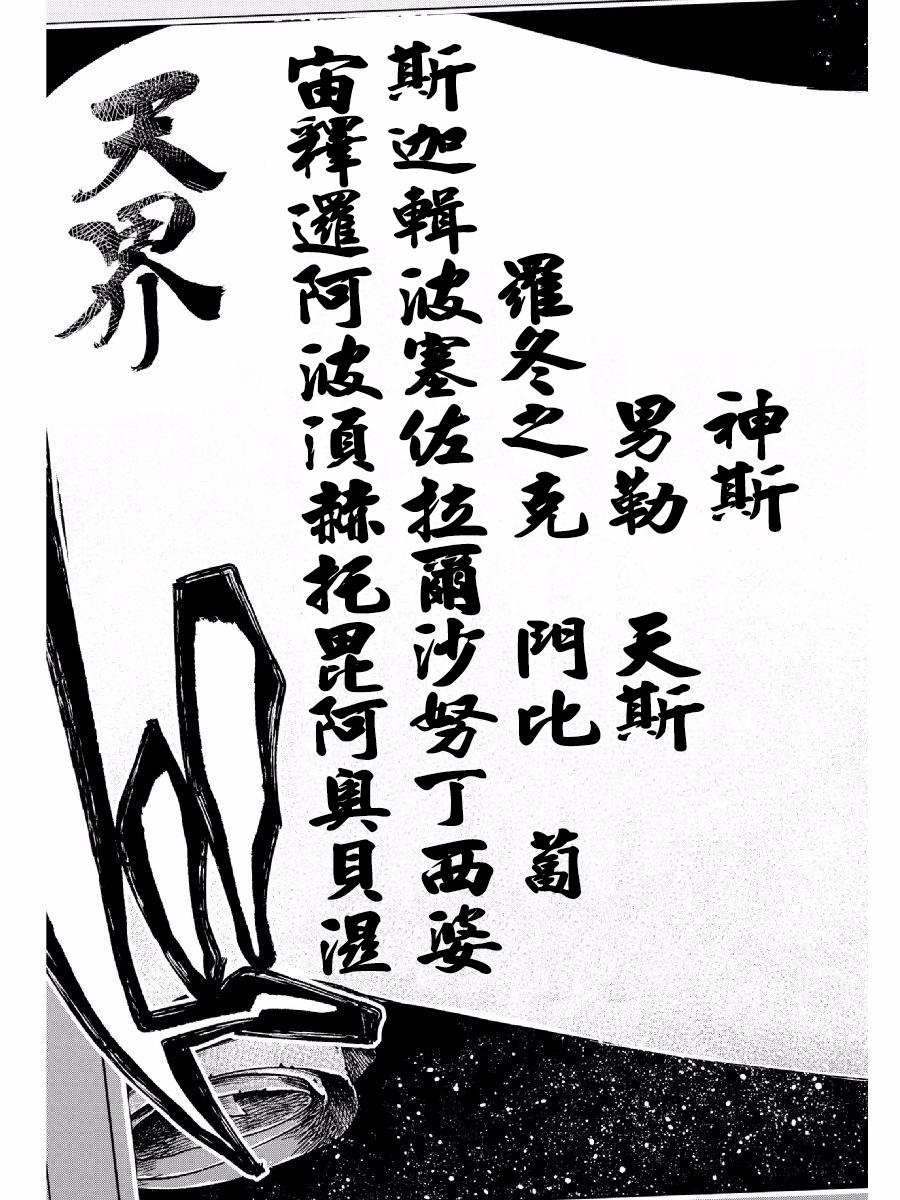 天界
宙斯
釋迦
邏輯
阿波羅
波塞冬
湏佐之男神
赫拉克勒斯
托爾
毘沙門天
阿努比斯
奧丁
貝西蔔
湿婆